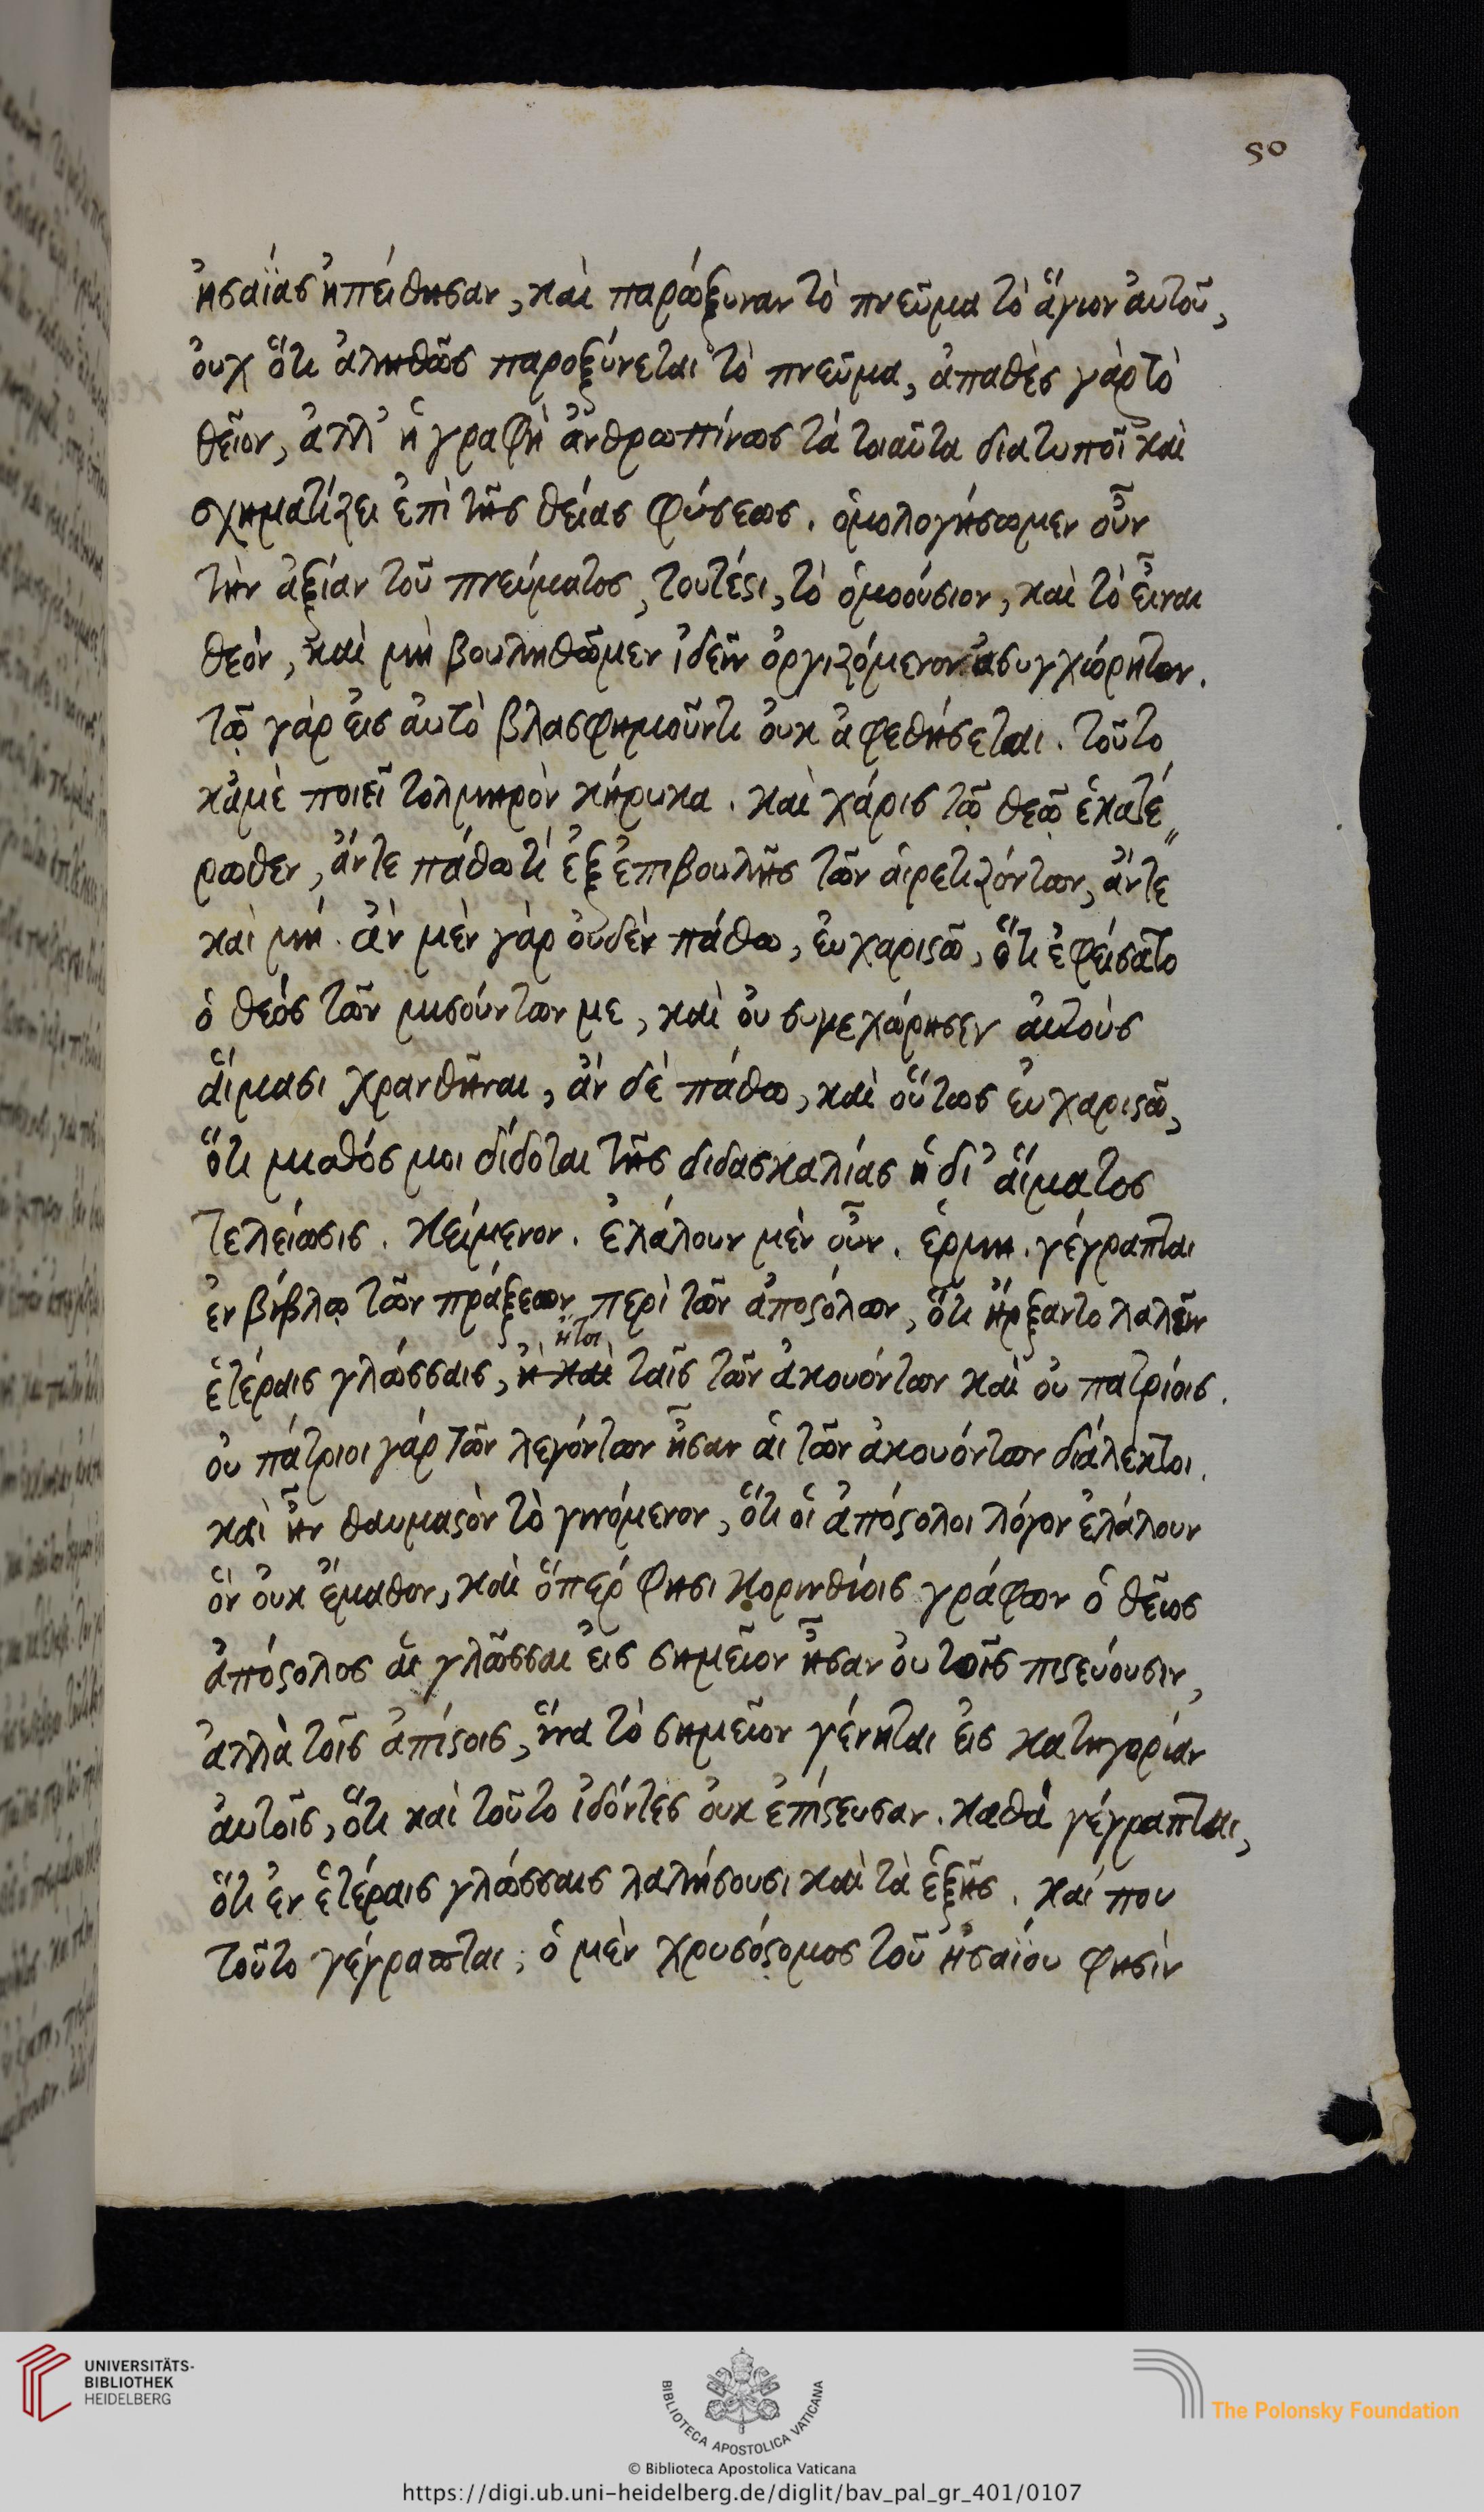 50
ἠσαΐας ἠπείθησαν, καὶ παρώξυναν τὸ πνεῦμα τὸ ἅγιον ἀυτοῦ,
ὀυχ ὅτι ἀληθῶς παροξύνεται τὸ πνεῦμα, ἀπαθὲς γὰρ τὸ
θεῖον, ἀλλ' ἡ γραφὴ ἀνθρωπίνως τὰ τοιαῦτα διατυποῖ καὶ
σχηματίζει ἐπὶ τῆς θείας φύσεως. ὁμολογήσωμεν οὖν
τὴν ἀξίαν τοῦ πνεύματος, τουτέϛι, τὸ ὁμοούσιον, καὶ τὸ εἶναι
θεόν, καὶ μὴ βουληθῶμεν ἰδεῖν ὀργιζόμενον ἀσυγχώρητον.
τῷ γὰρ ἐις ἀυτὸ βλασφημοῦντι ὀυκ ἀφεθήσεται. τοῦτο
κἀμὲ ποιεῖ τολμηρὸν κήρυκα. καὶ χάρις τῷ θεῷ ἑκατέ"
ρωθεν, ἄντε πάθω τί ἐξ ἐπιβουλῆς τῶν ἁιρετιζόντων, ἄντε
καὶ μή. ἂν μὲν γὰρ ὀυδὲν πάθω, ἐυχαριϛῶ, ὅτι ἐφείσατο
ὁ θεός τῶν μισούντων με, καὶ ὀυ συνεχώρησεν ἀυτοὺς
ἅιμασι χρανθῆναι, ἂν δὲ πάθω, καὶ οὕτως ἐυχαριϛῶ,
ὅτι μισθός μοι δίδοται τῆς διδασκαλίας ἡ δι' αἵματος
τελείωσις. Κείμενον. ἐλάλουν μὲν οὖν. ἑρμη. γέγραπται
ἐν βίβλῳ τῶν πράξεων περὶ τῶν ἀποϛόλων, ὅτι ἤρξαντο λαλεῖν
ἤτοι
ἑτέραις γλώσσαις, ἢ καὶ ταῖς τῶν ἀκουόντων καὶ ὀυ πατρίοις.
ὀυ πάτριοι γὰρ τῶν λεγόντων ἦσαν ἁι τῶν ἀκουόντων διάλεκτοι.
καὶ ἦν θαυμαϛὸν τὸ γινόμενον, ὅτι ὁι ἀπόϛολοι λόγον ἐλάλουν
ὃν ὀυκ ἔμαθον, καὶ ὅπερ φησι κορινθίοις γράφων ὁ θεῖος
ἀπόϛολος ἁι γλῶσσαι ἐις σημεῖον ἦσαν ὀυ τοῖς πιϛεύουσιν,
ἀλλὰ τοῖς ἀπίϛοις, ἵνα τὸ σημεῖον γένηται ἐις κατηγορίαν
ἀυτοῖς, ὅτι καὶ τοῦτο ἰδόντες ὀυκ ἐπίϛευσαν. καθὰ γέγραπται,
ὅτι ἐν ἑτέραις γλώσσαις λαλήσουσι καὶ τὰ ἑξῆς. καί που
τοῦτο γέγραπται; ὁ μὲν χρυσόϛομος τοῦ ἠσαΐου φησὶν
UNIVERSITÄTS-
BIBLIOTHEK
HEIDELBERG
BIBLIOTECA APOSTOLICA VATICANA
The Polonsky Foundation
© Biblioteca Apostolica Vaticana
https://digi.ub.uni-heidelberg.de/diglit/bav_pal_gr_401/0107